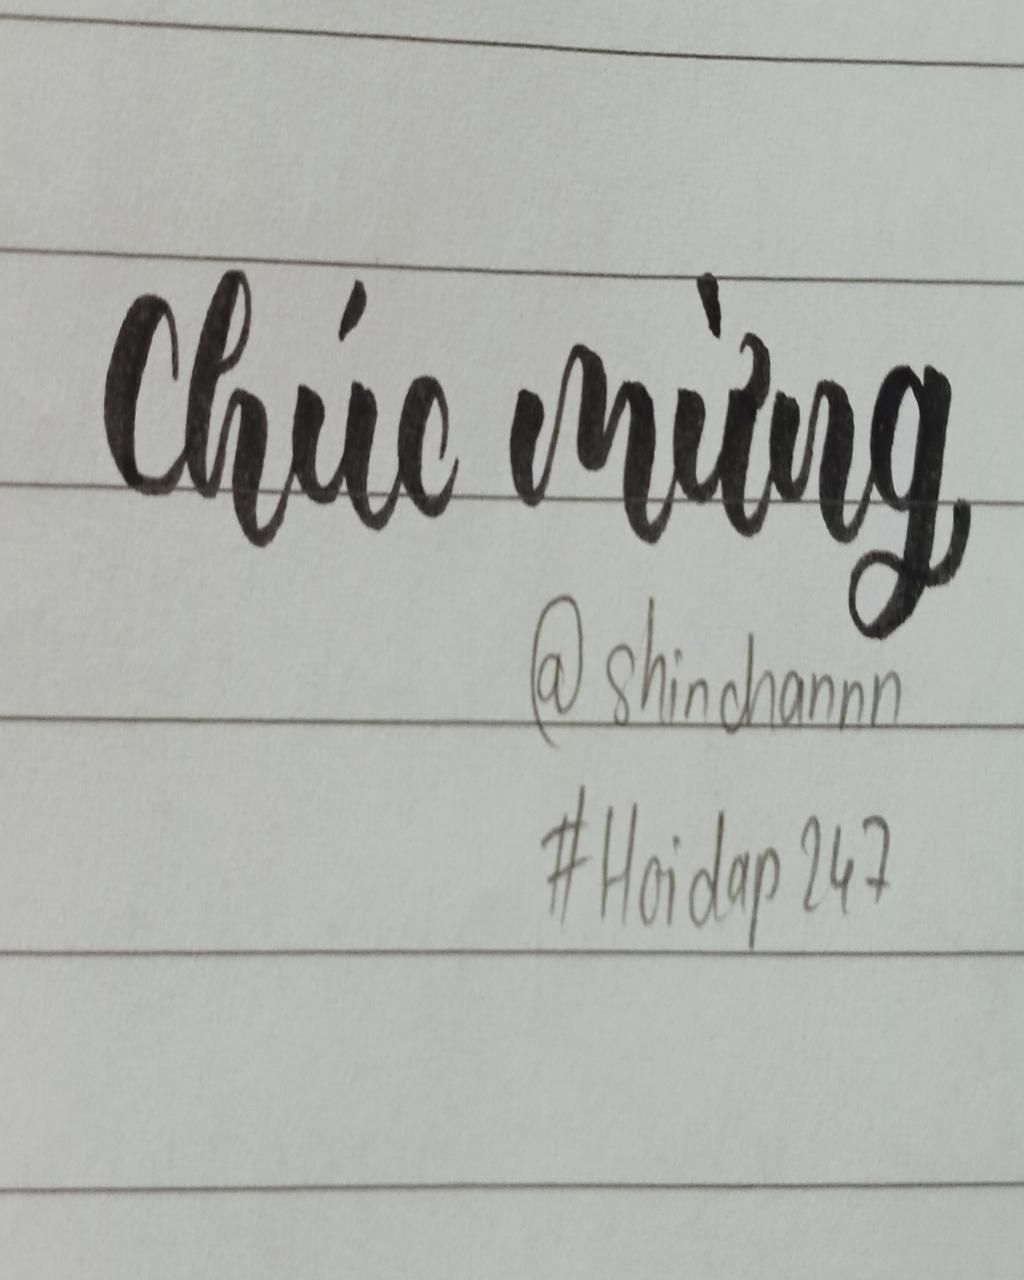 Chúc mừng
@shinchannn
#Hoidap247